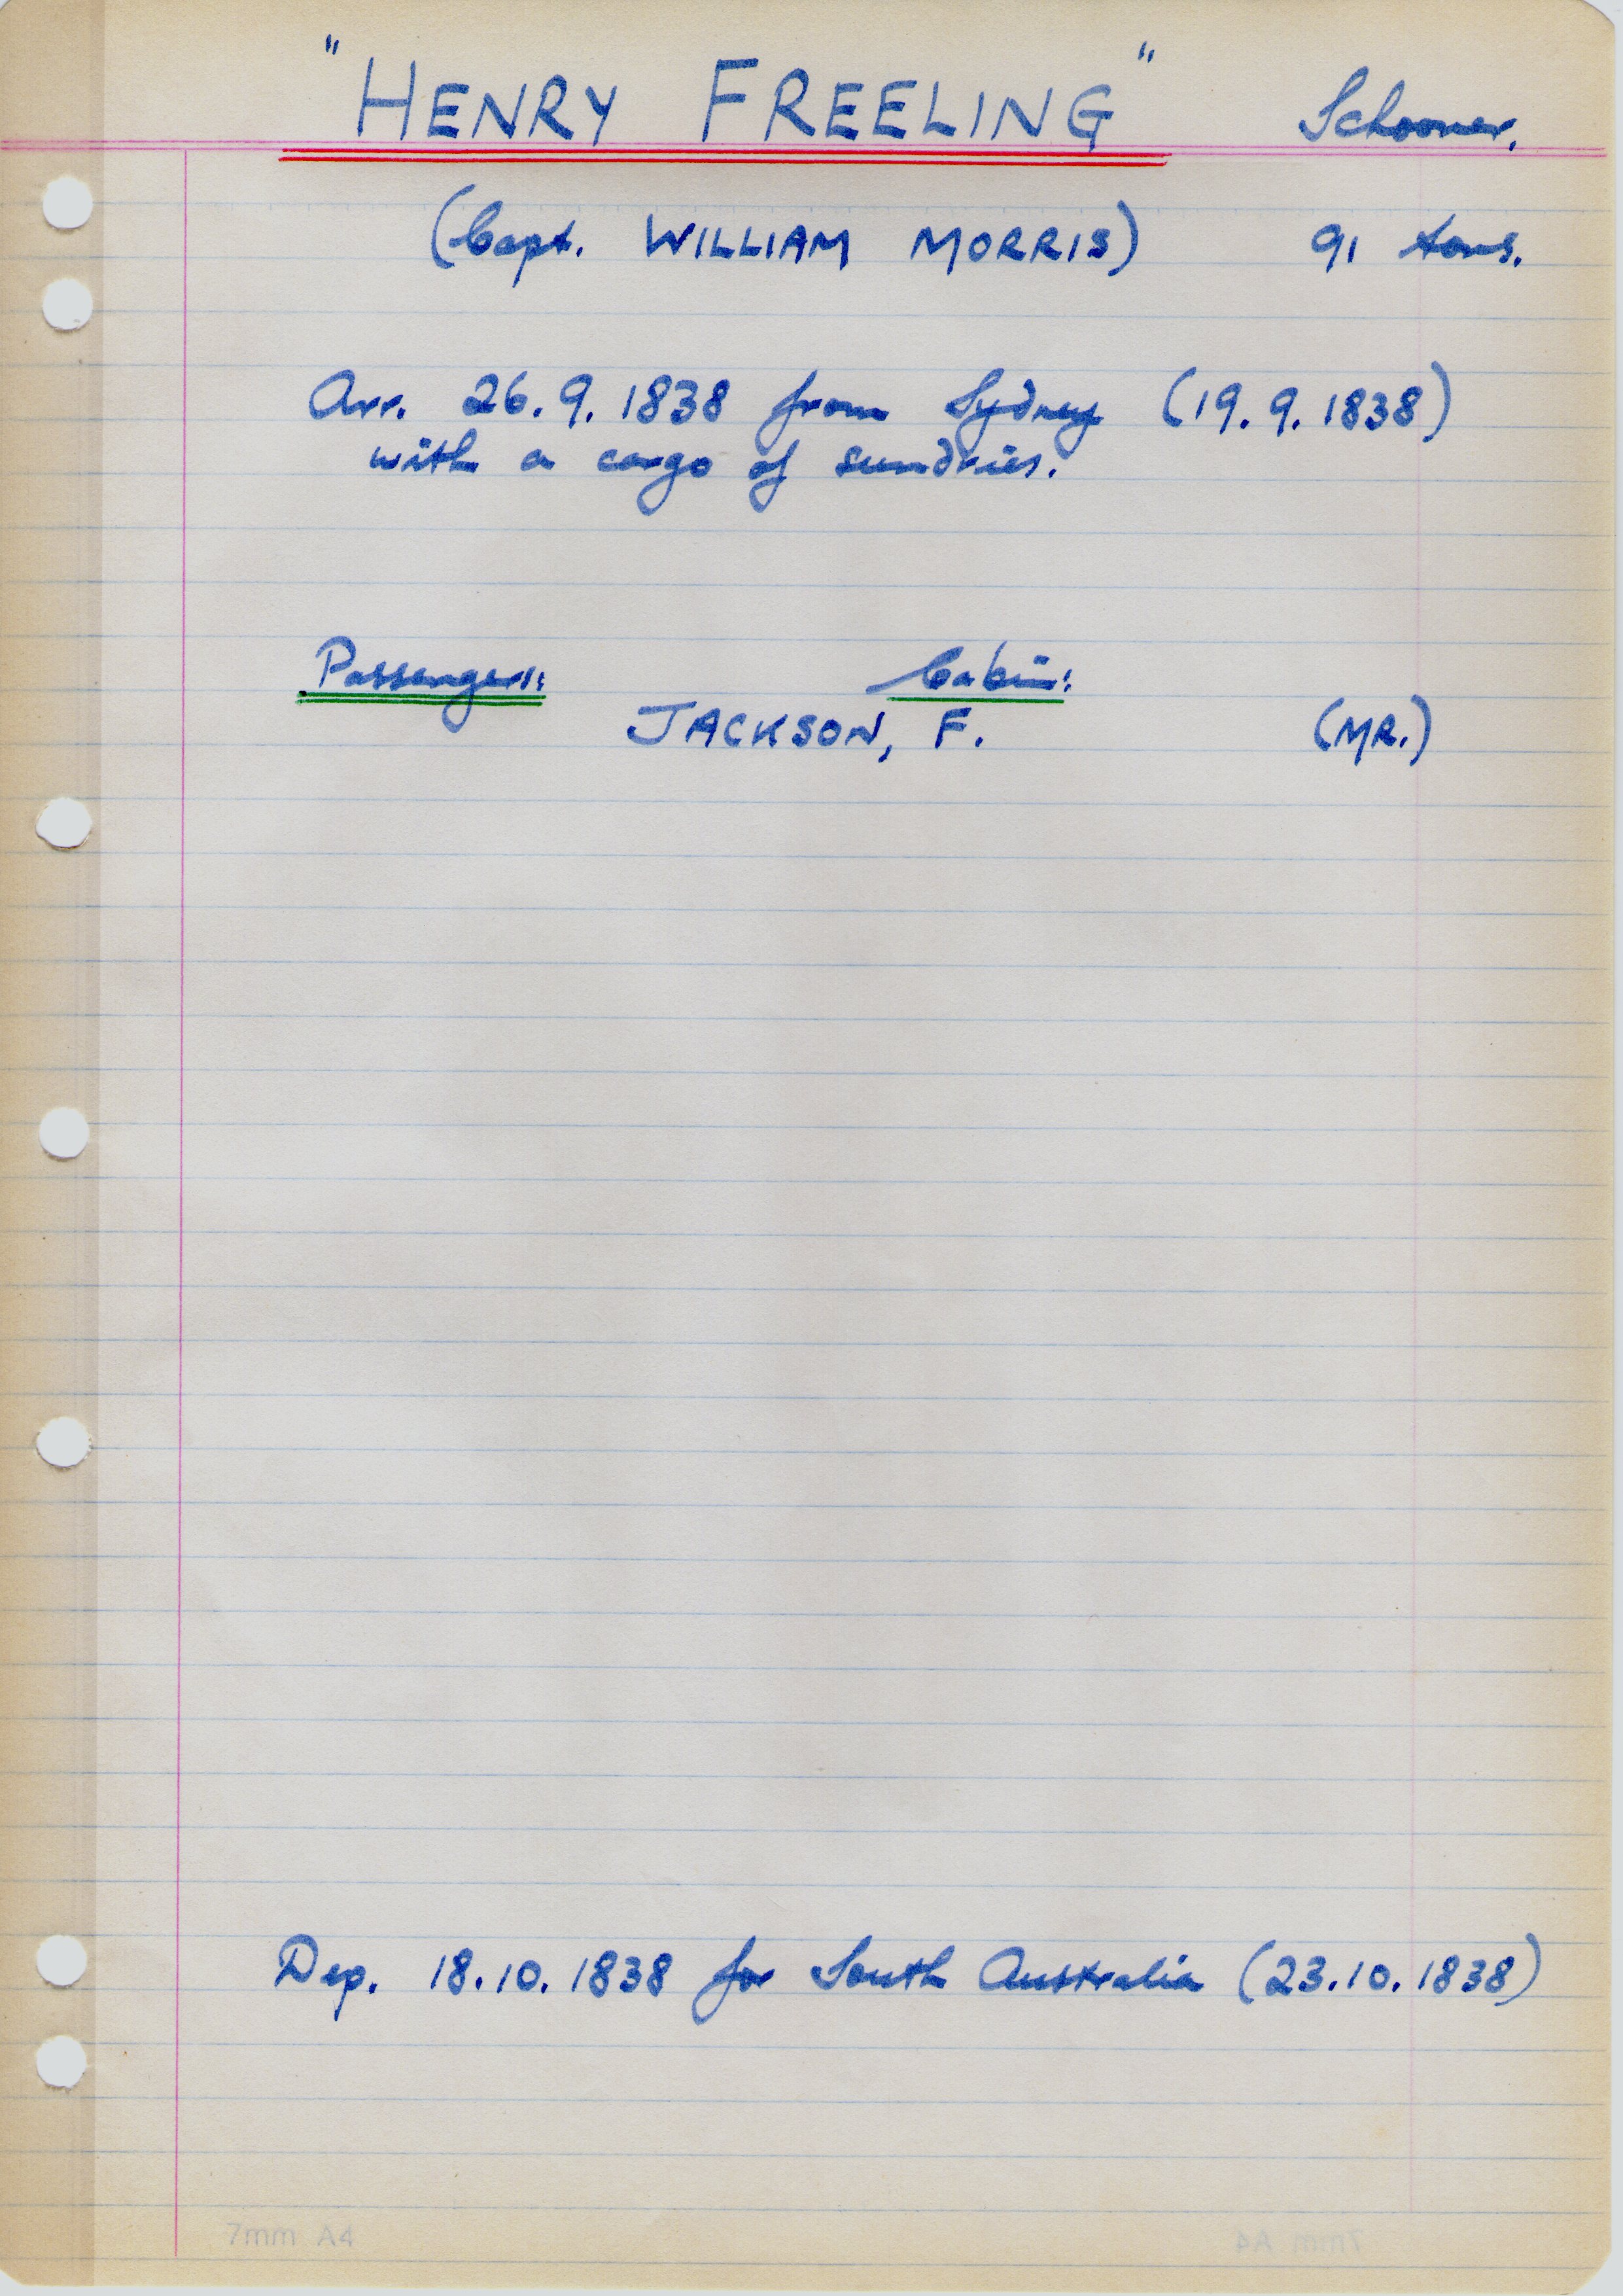 "HENRY FREELING" Schooner.
(Capt. WILLIAM MORRIS) 91 tons.
Arr. 26.9.1838 from Sydney (19.9.1838)
with a cargo of sundries.
Passengers: Cabin:
JACKSON, F. (MR.)
Dep. 18.10.1838 for South Australia (23.10.1838)
7mm A4
7mm A4